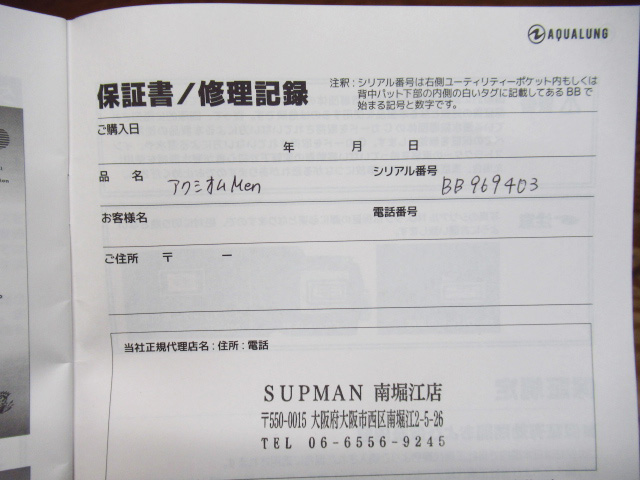 AQUALUNG
保証書/修理記録
注釈:シリアル番号は右側ユーティリティーポケット内もしくは
背中パット下部の内側の白いタグに記載してある BB で
始まる記号と数字です。
ご購入日
年 月 日
品 名 アクシオムMen シリアル番号 BB969403
お客様名 電話番号
ご住所 〒 ー
当社正規代理店名:住所:電話
SUPMAN 南堀江店
〒550-0015 大阪府大阪市西区南堀江2-5-26
TEL 06-6556-9245